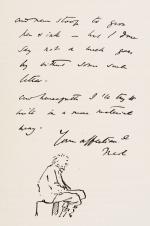 and now stoop to pen
pen & ink — but I dare
say not a week goes
by without some such
letter.
and henceforth I'll try to
write in a more material
way.
Your affection
Ned